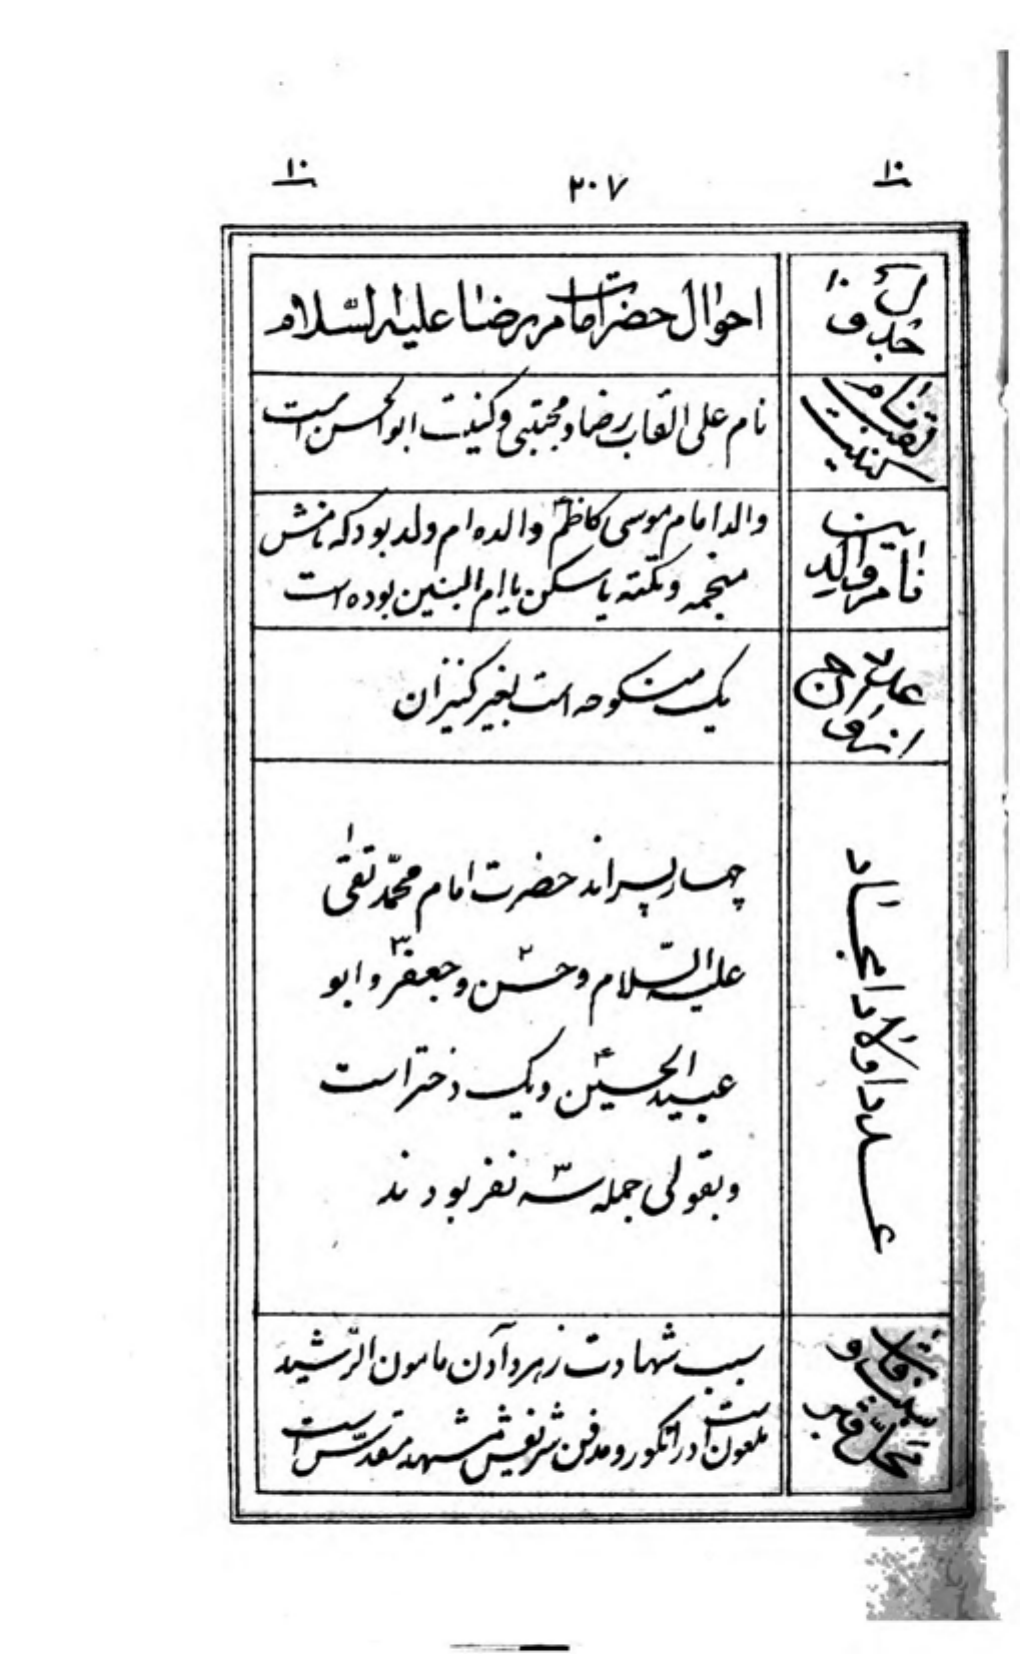 ١٠ ٢٠٧ ١٠
احوال حضرت امام رضا علیه السّلام
نام لقب کنیت
نام علی القاب رضا و مجتبی و کنیت ابو الحسن است
نام والدین
والد امام موسی کاظمؑ والده ام ولد بود که نامش
منجمه و تکتمه یا سکن یا ام البنین بوده است
عدد ازواج
یک منکوحه است بغیر کنیزان
عدد اولاد امجاد
چهار پسر اند حضرت امام محمّد تقی١
علیه السّلام و حسن٢ و جعفر٣ و ابو
عبید الحسین٤ و یک دختر است
و بقولی جمله سه٣ نفر بودند
سبب وفات و محلّ قبر
سبب شهادت زهر دادن مامون الرّشید
ملعون است در انگور و مدفن شریفش مشهد مقدّس است